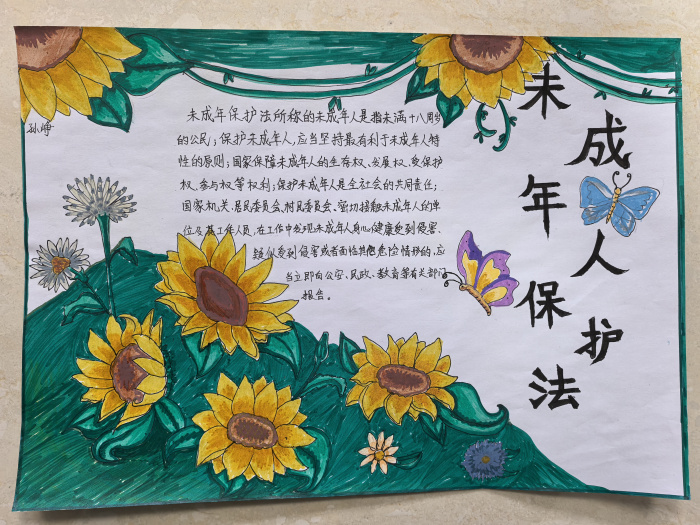 未成年人保护法
未成年保护法所称的未成年人是指未满十八周岁
的公民；保护未成年人，应当坚持最有利于未成年人特
性的原则；国家保障未成年人的生存权、发展权、受保护
权、参与权等权利；保护未成年人是全社会的共同责任；
国家机关、居民委员会、村民委员会、密切接触未成年人的单
位及其工作人员，在工作中发现未成年人身心健康受到侵害、
疑似受到侵害或者面临其他危险情形的，应
当立即向公安、民政、教育等有关部门
报告。